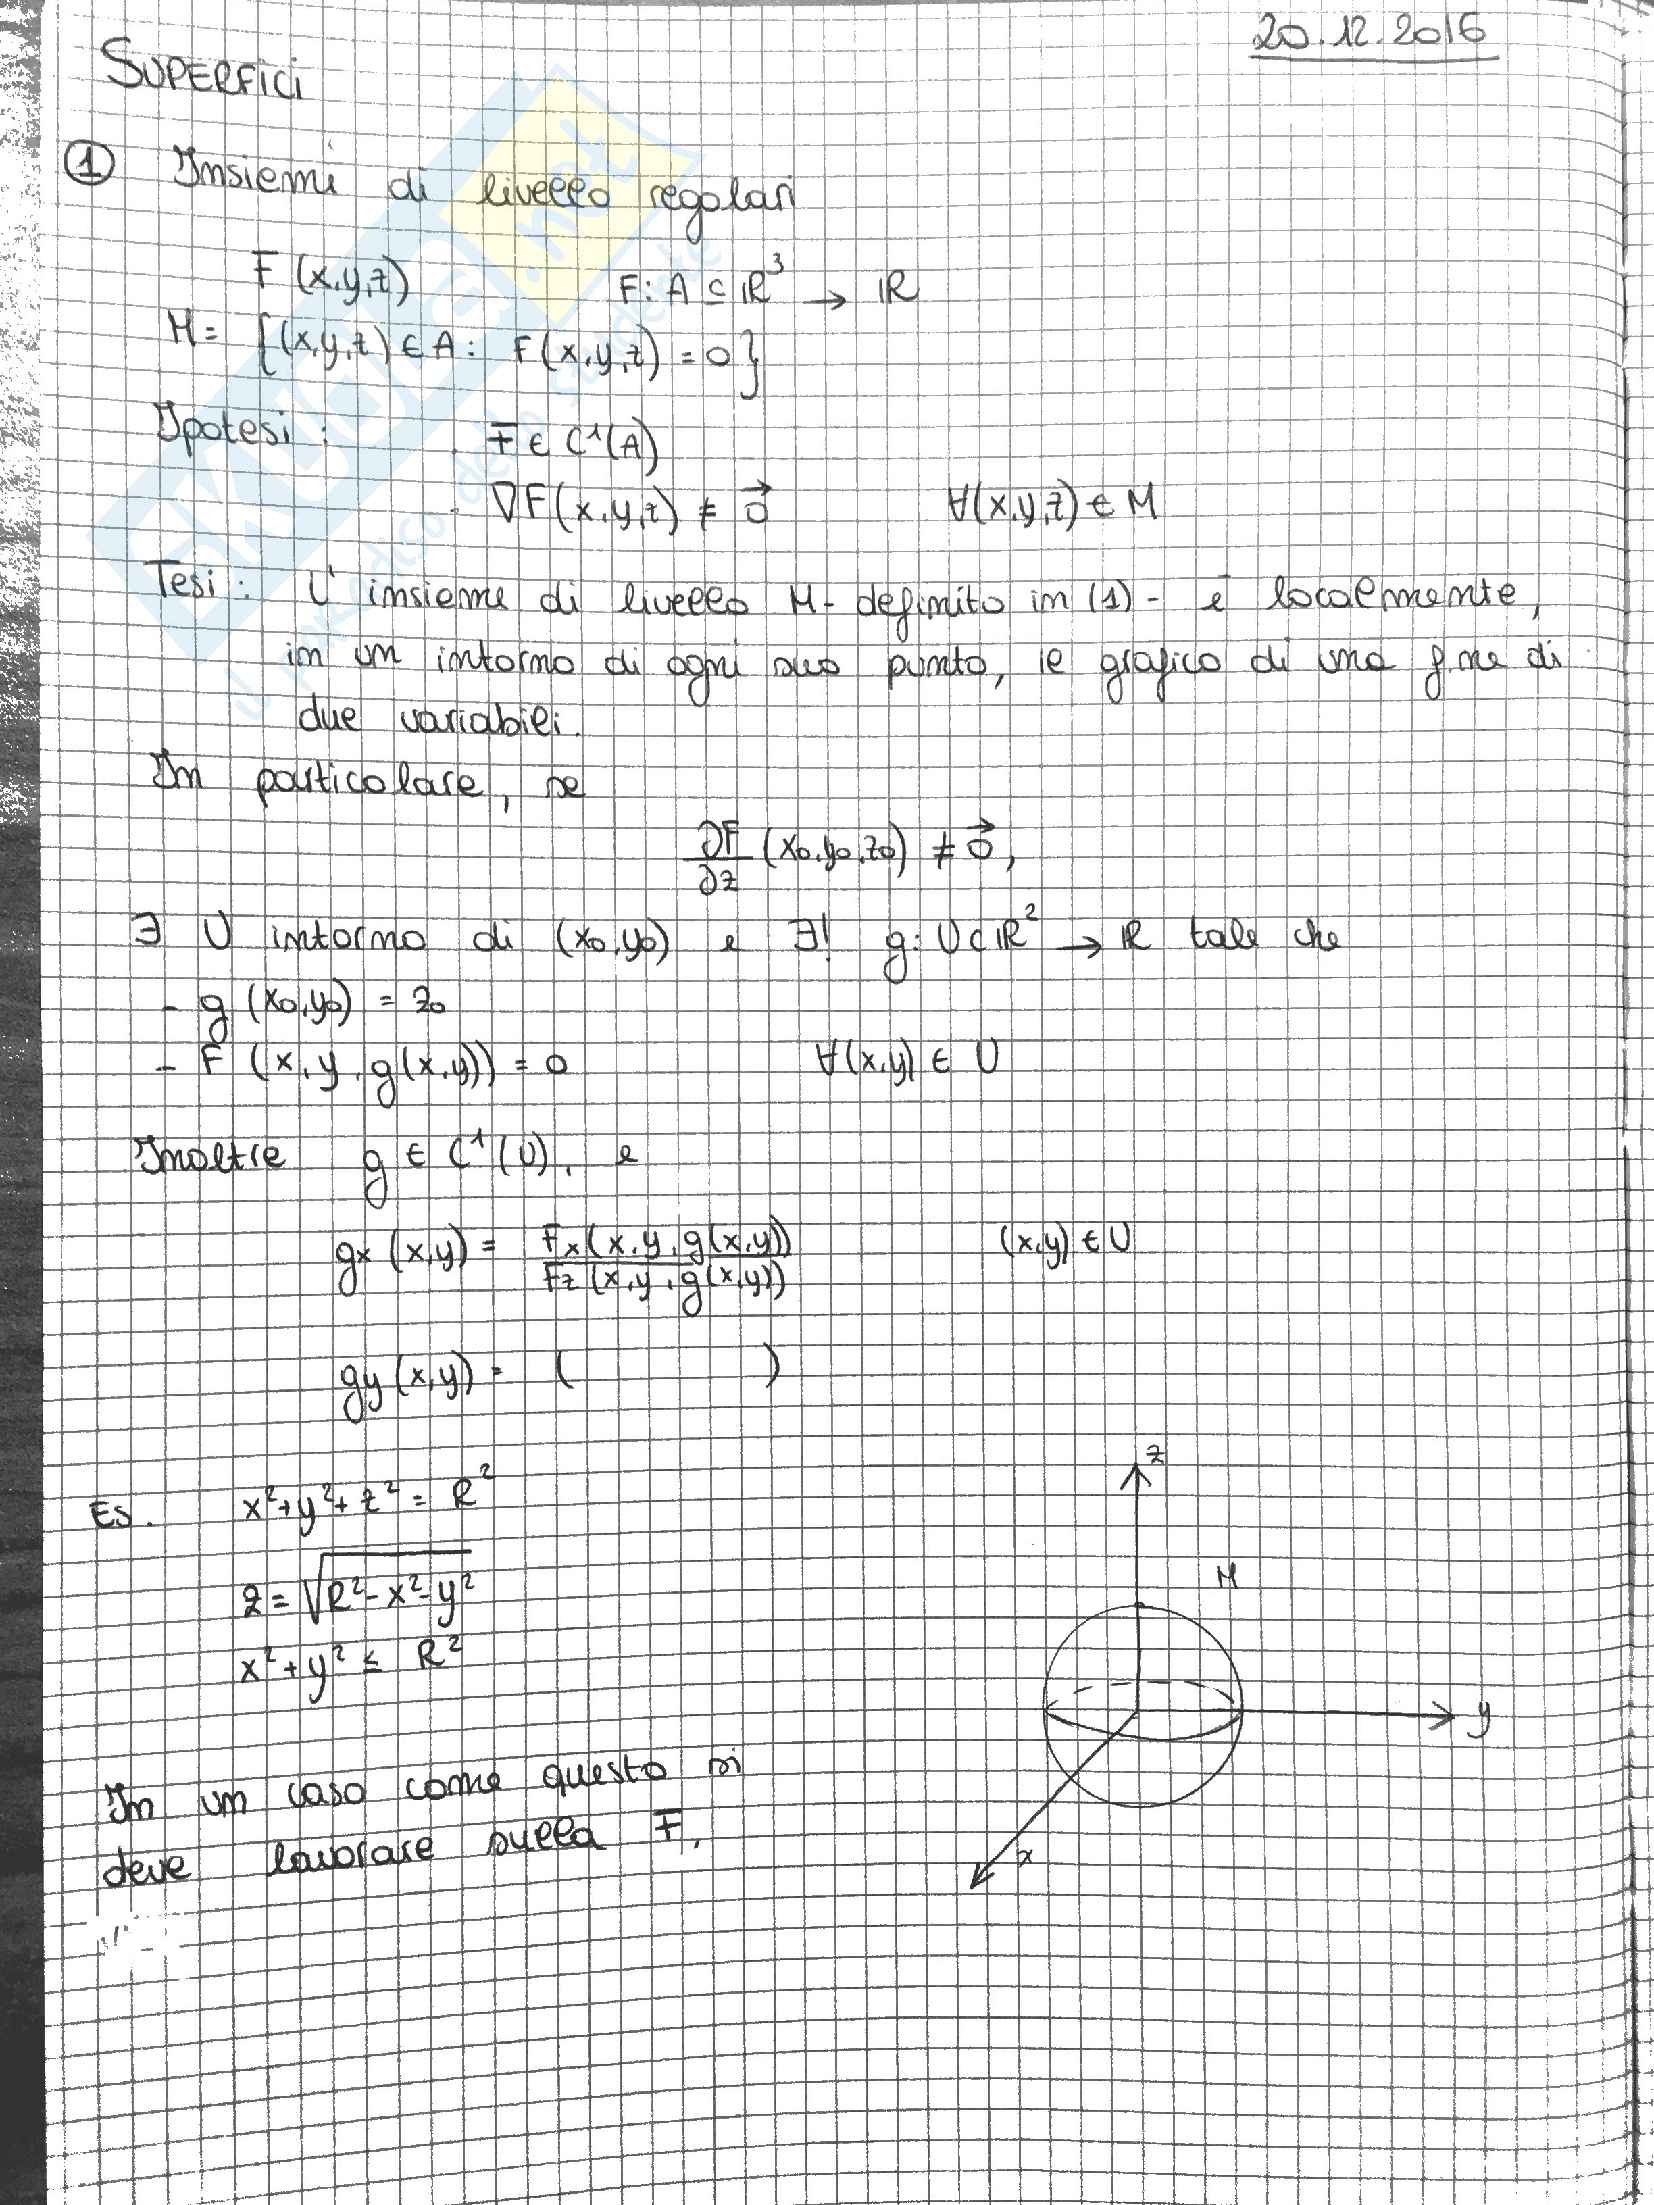 20.12.2016
SUPERFICI
① Insiemi di livello regolari
F (x,y,z) F: A ⊆ ℝ³ → ℝ
M = {(x,y,z) ∈ A : F(x,y,z) = 0}
Ipotesi : . F ∈ C¹(A)
. ∇F(x,y,z) ≠ 0⃗ ∀(x,y,z) ∈ M
Tesi : L'insieme di livello M - definito in (1) - è localmente,
in un intorno di ogni suo punto, il grafico di una f.ne di
due variabili.
In particolare, se
∂F/∂z (x₀,y₀,z₀) ≠ 0⃗,
∃ U intorno di (x₀,y₀) e ∃! g: U ⊂ ℝ² → ℝ tale che
- g (x₀,y₀) = z₀
- F (x,y,g(x,y)) = 0 ∀(x,y) ∈ U
Inoltre g ∈ C¹(U), e
gx (x,y) = Fx(x,y,g(x,y)) / Fz(x,y,g(x,y)) (x,y) ∈ U
gy (x,y) = ( )
Es. x²+y²+z² = R²
z = √(R²-x²-y²)
x²+y² ≤ R²
z
M
y
x
In un caso come questo si
deve lavorare sulla F.
SKUOLA.net
il paradiso dello studente